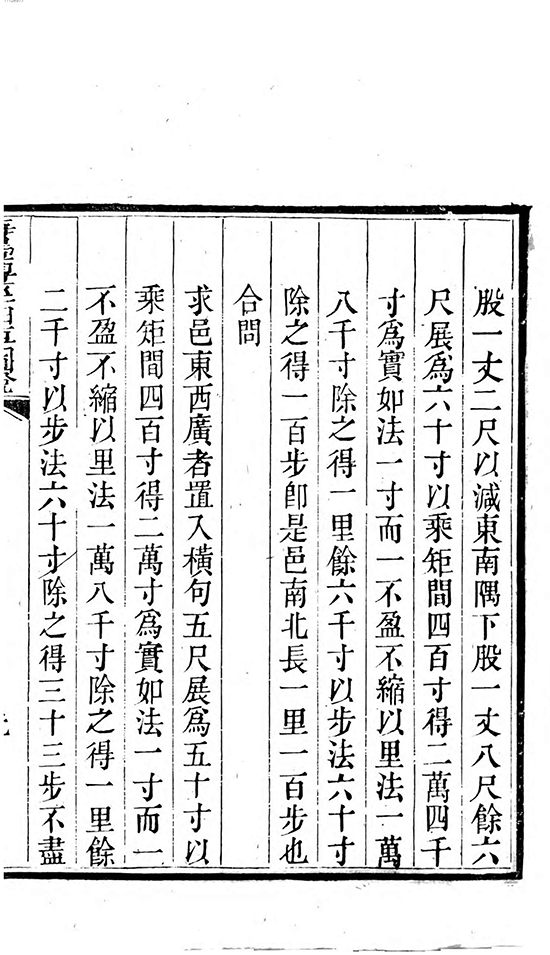 股一丈二尺以減東南隅下股一丈八尺餘六
尺展爲六十寸以乘矩間四百寸得二萬四千
寸爲實如法一寸而一不盈不縮以里法一萬
八千寸除之得一里餘六千寸以步法六十寸
除之得一百步卽是邑南北長一里一百步也
合問
求邑東西廣者置入橫句五尺展爲五十寸以
乘矩間四百寸得二萬寸爲實如法一寸而一
不盈不縮以里法一萬八千寸除之得一里餘
二千寸以步法六十寸除之得三十三步不盡